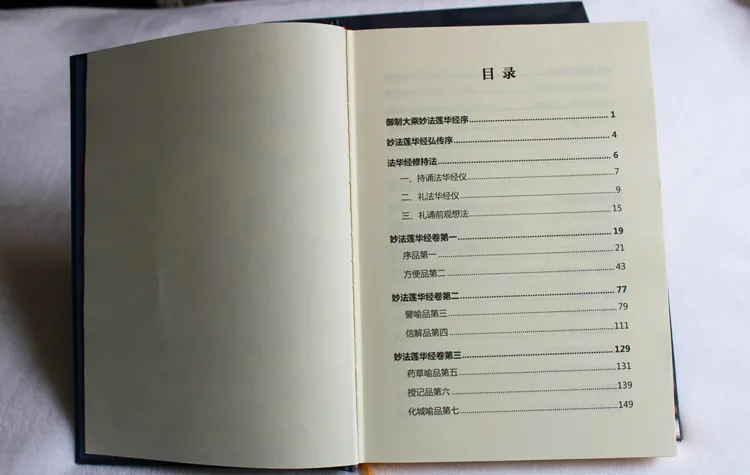 目录
御制大乘妙法莲华经序 1
妙法莲华经弘传序 4
法华经修持法 6
一、持诵法华经仪 7
二、礼法华经仪 9
三、礼诵前观想法 15
妙法莲华经卷第一 19
序品第一 21
方便品第二 43
妙法莲华经卷第二 77
譬喻品第三 79
信解品第四 111
妙法莲华经卷第三 129
药草喻品第五 131
授记品第六 139
化城喻品第七 149